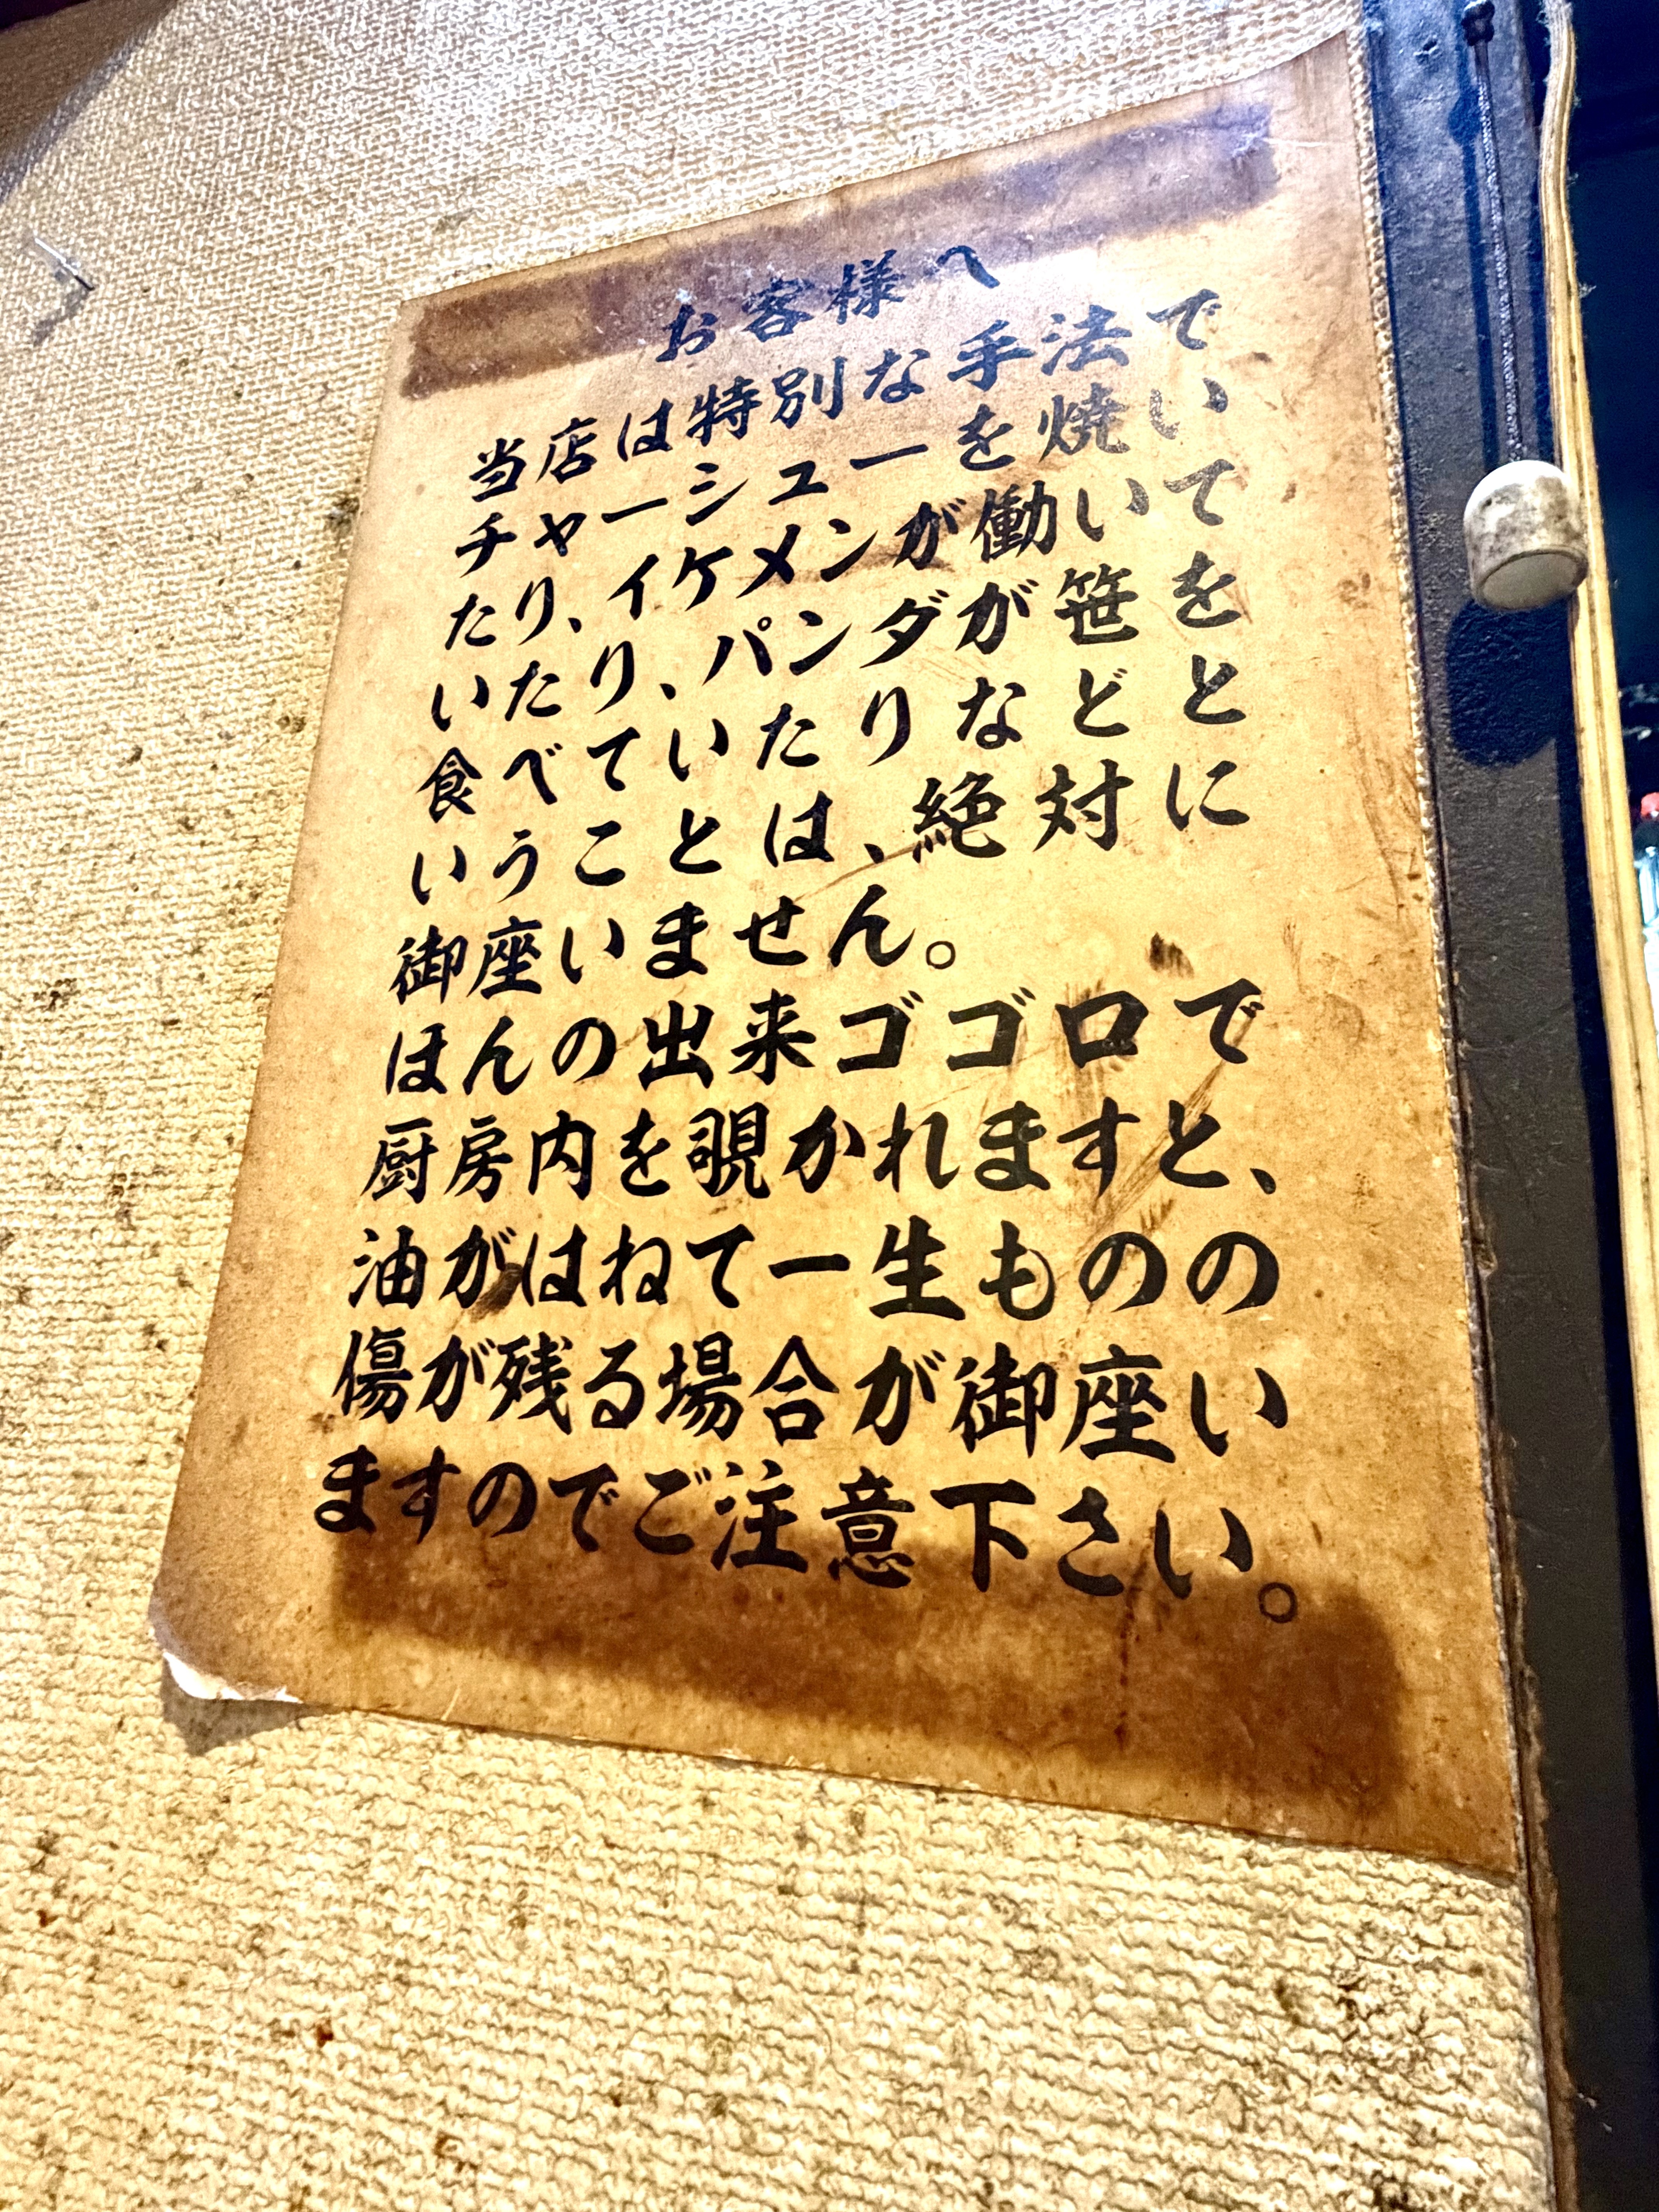 お客様へ
当店は特別な手法で
チャーシューを焼い
たり、イケメンが働いて
いたり、パンダが笹を
食べていたりなどと
いうことは、絶対に
御座いません。
ほんの出来ゴゴロで
厨房内を覗かれますと、
油がはねて一生ものの
傷が残る場合が御座い
ますのでご注意下さい。